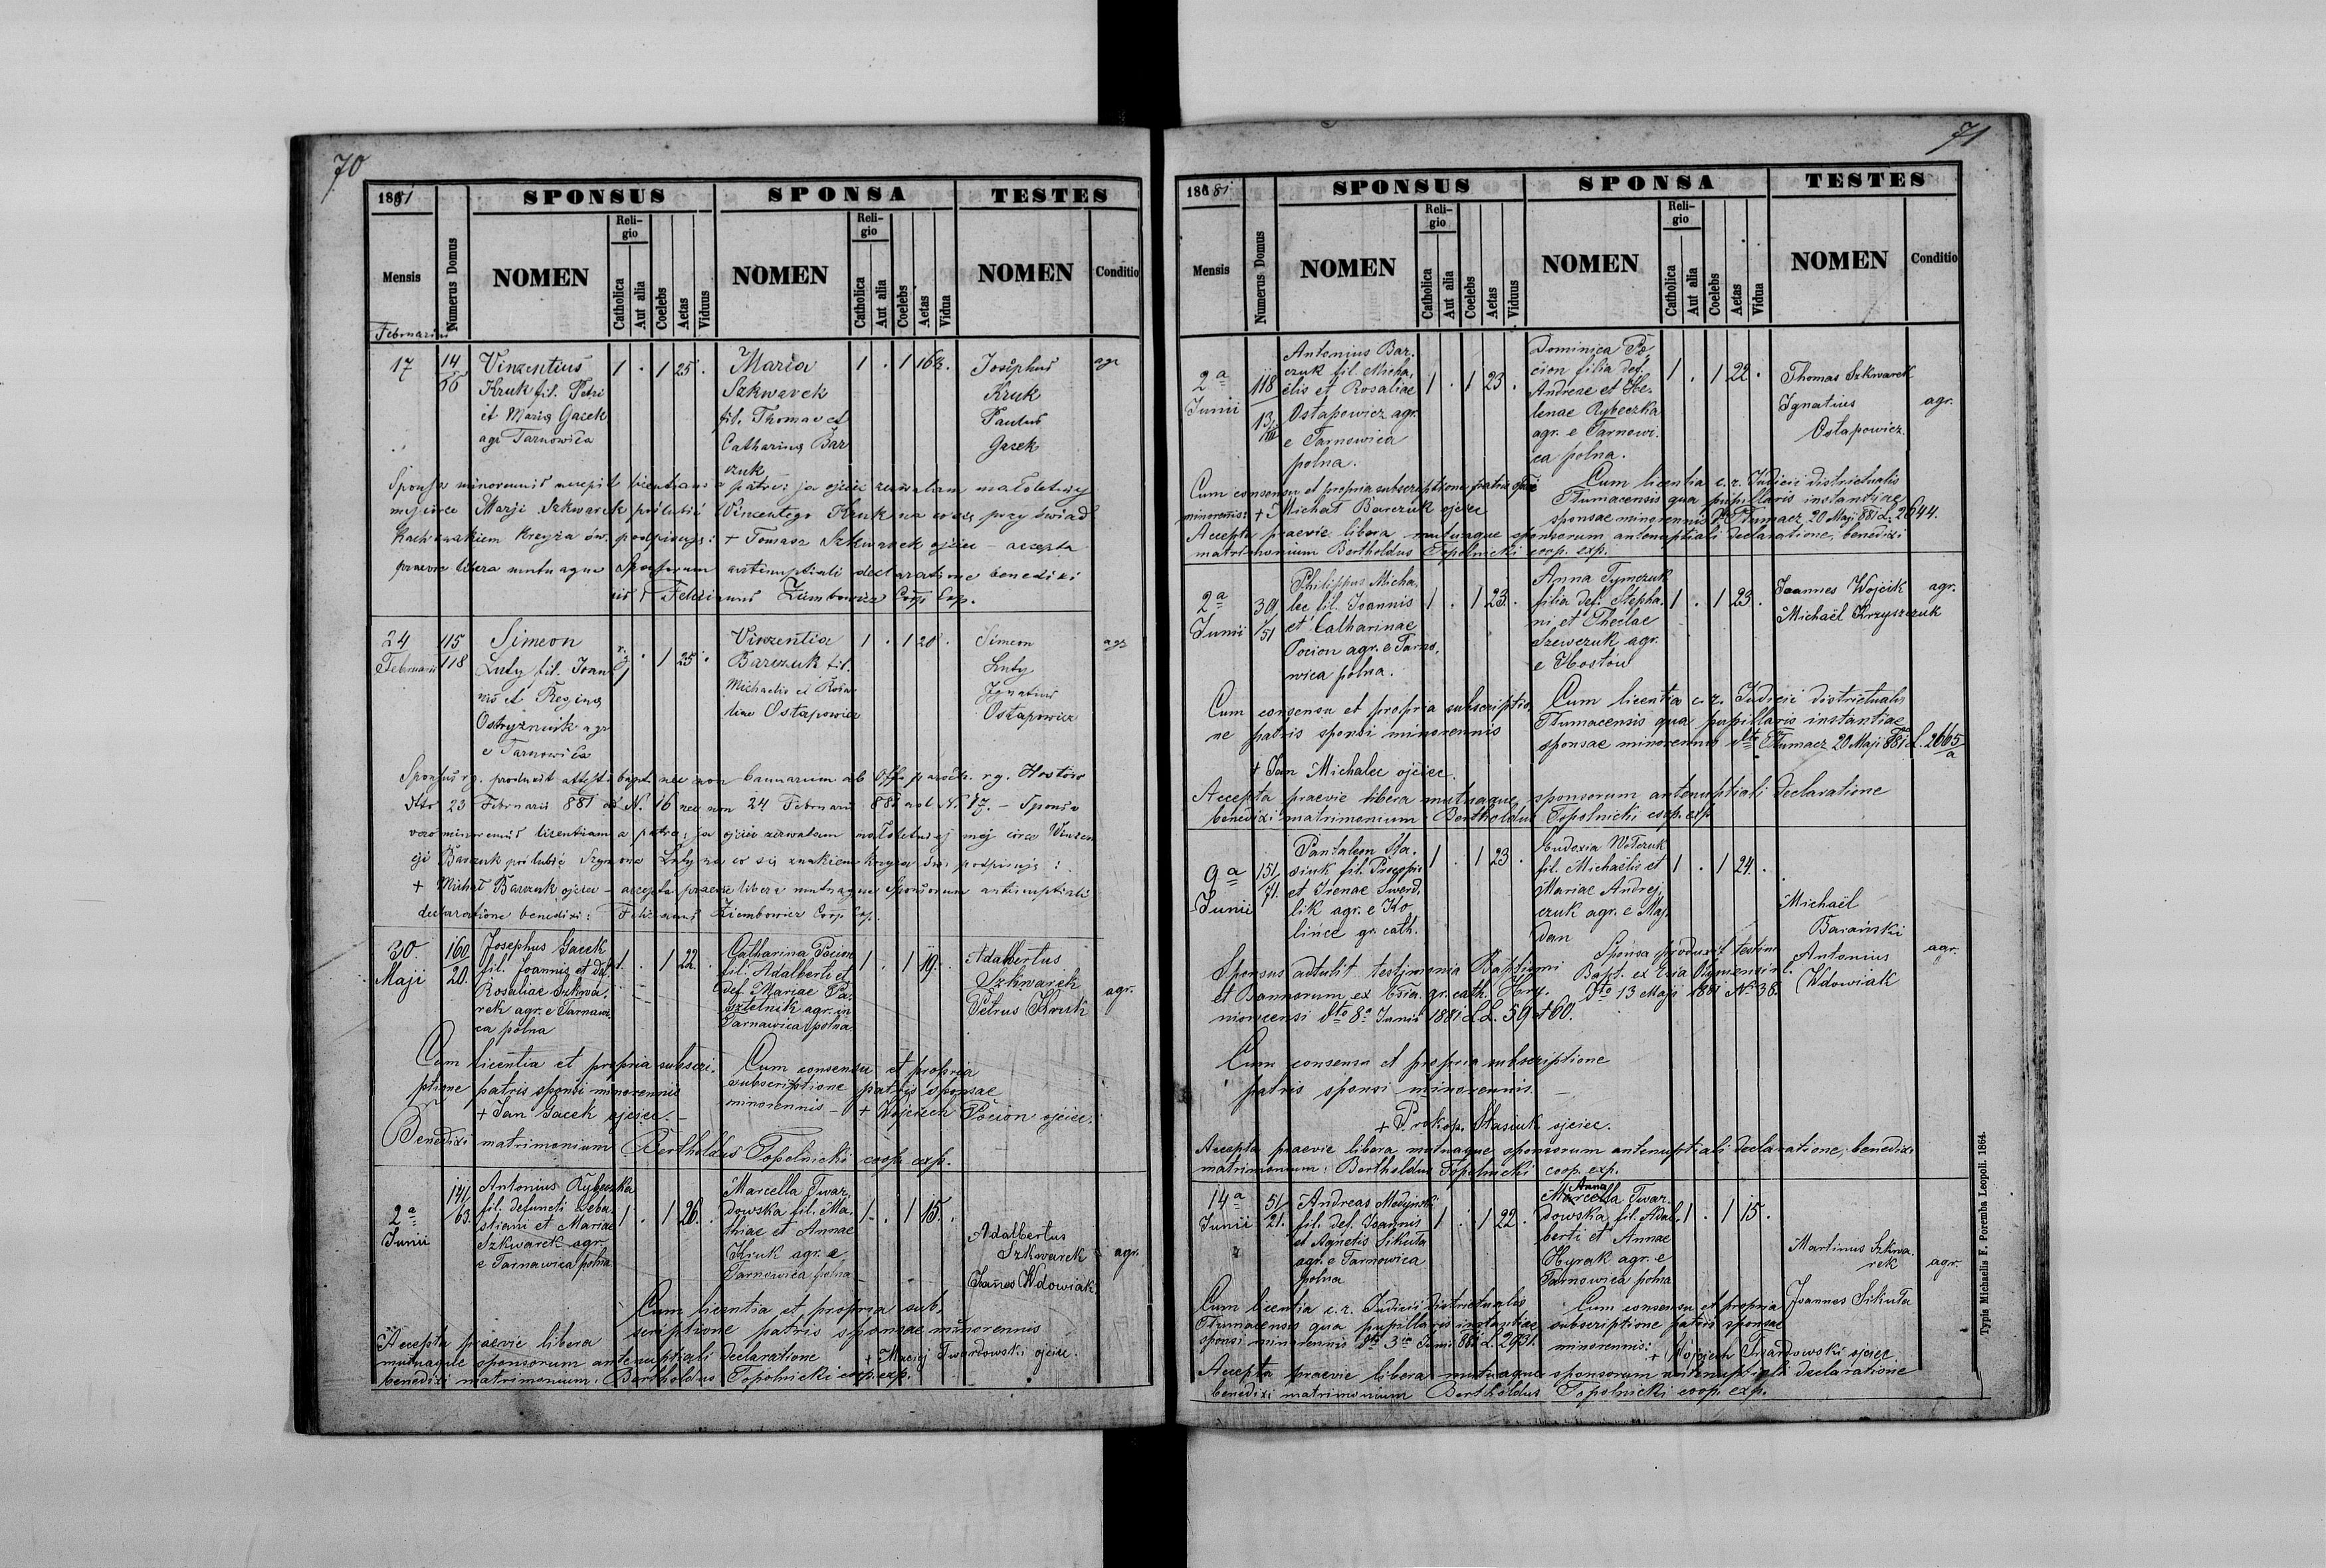 70
1881
SPONSUS
SPONSA
TESTES
Mensis
Numerus Domus
NOMEN
Religio
Catholica
Aut alia
Coelebs
Aetas
Viduus
NOMEN
Religio
Catholica
Aut alia
Coelebs
Aetas
Vidua
NOMEN
Conditio
Februarius
17
14/66
Vinzentius
Kruk fil. Petri
et Maria Gasek
agr Tarnowica
1 . 1 25 .
Maria
Szkwarek
fil. Thomae et
Catharina Bar
czuk
1 . 1 16½ .
Josephus
Kruk
Paulus
Gasek
agr
Sponsa minorenis accepit licentiam a patre: ja ojciec zezwalam małoletniej
mej córce Marji Szkwarek poślubić Vincentego Kruk na co się przy świad
kach znakiem krzyża św. podpisuję: + Tomasz Szkwarek ojciec – accepta
praevie libera mutuaque Sponsorum antenuptiali declaratione benedixi
Felicianus Ziembowicz Coop Exp.
24
Februarii
115
118
Simeon
Luty fil. Joan
nis et Regina
Ostryzniuk agr
e Tarnowica
r.g. 1 . 1 25 .
Vinzentia
Barczuk fil.
Michaelis et Rosa
liae Ostapowicz
1 . 1 20 .
Simeon
Luty
Ignatius
Ostapowicz
agr
Sponsus r.g. produxit attest. bapt. nec non bannorum ab Offo paroch. r.g. Hostów
dtto 23 Februarii 881 ad N. 16 nec non 24 Februarii 881 ad N. 17. – Sponsa
vero minorenis licentiam a patre: ja ojciec zezwalam małoletniej mej córce Vinzen
cji Barczuk poślubić Szymona Luty na co się znakiem krzyża św. podpisuję:
+ Michał Barczuk ojciec – accepta praevie libera mutuaque Sponsorum antenuptiali
declaratione benedixi: Felicianus Ziembowicz Coop Exp.
30
Maji
160/20.
Josephus Gacek
fil. Joannis et def.
Rosaliae Szkwa.
rek agr. e Tarnawi.
ca polna
1 . 1 22 .
Catharina Pocion
fil. Adalberti et
def. Mariae Pa.
sztelnik agr. in
Tarnawica polna
1 . 1 19. .
Adalbertus
Szkwarek
Petrus Kruk
agr.
Cum licentia et propria subscri.
ptione patris sponsi minorennis
+ Jan Gacek ojciec. –
Cum consensu et propria
subscriptione patris sponsae
minorennis – + Wojciech Pocion ojciec.
Benedixi matrimonium Bertholdus Topolnicki coop. exp.
2a
Junii
141/63.
Antonius Rybeczka
fil. defuncti Seba.
stiani et Mariae
Szkwarek agr.
e Tarnawica polna
1 . 1 26. .
Marcella Twar.
dowska fil. Ma.
thiae et Annae
Kruk agr. e
Tarnowica polna
1 . 1 15. .
Adalbertus
Szkwarek
Joannes Wdowiak
agr.
Cum licentia et propria sub.
scriptione patris sponsae minorennis
+ Maciej Twardowski ojciec.
Accepta praevie libera
mutuaque sponsorum antenuptiali declaratione
benedixi matrimonium: Bertholdus Topolnicki coop. exp.
71
1881
SPONSUS
SPONSA
TESTES
Mensis
Numerus Domus
NOMEN
Religio
Catholica
Aut alia
Coelebs
Aetas
Viduus
NOMEN
Religio
Catholica
Aut alia
Coelebs
Aetas
Vidua
NOMEN
Conditio
2a
Junii
118
Antonius Bar.
czuk fil. Micha.
elis et Rosaliae
Ostapowicz agr.
e Tarnowica
polna.
1 . 1 23 .
Dominica Po.
cion filia def.
Andreae et He.
lenae Rybeczka
agr. e Tarnowi.
ca polna.
1 . 1 22 .
Thomas Szkwarek
Ignatius
Ostapowicz.
agr.
Cum consensu et propria subscriptione patris sponsi
minorennis: + Michał Barczuk ojciec
Cum licentia c.r. Judicii districtualis
Tłumacensis qua pupillaris instantiae
sponsae minorennis dto Tłumacz 20 Maji 881 L. 2644.
Accepta praevie libera mutuaque sponsorum antenuptiali declaratione, benedixi
matrimonium Bertholdus Topolnicki coop. exp.
2a
Junii
39/151
Philippus Micha.
lec fil. Joannis
et Catharinae
Pocion agr. e Tarno.
wica polna.
1 . 1 23. .
Anna Tymczuk
filia def. Stepha.
ni et Theclae
Szewczuk agr.
e Hostów
1 . 1 23 .
Joannes Wojcik
Michaël Krzyszczuk
agr.
Cum consensu et propria subscriptio.
ne patris sponsi minorennis
+ Jan Michalec ojciec.
Cum licentia c.r. Judicii districtualis
Tłumacensis qua pupillaris instantiae
sponsae minorennis dto Tłumacz 20 Maji 881 L. 2665/a
Accepta praevie libera mutuaque sponsorum antenuptiali declaratione
benedixi matrimonium Bertholdus Topolnicki coop. exp.
9a
Junii
151/71.
Pantaleon Sta.
siuk fil. Procopii
et Irenae Swerd.
lik agr. e Ko
lińce gr. cath.
1 . 1 23 .
Eudoxia Wołczuk
fil. Michaëlis et
Mariae Andrej.
czuk agr. e Maj.
dan
1 . 1 24. .
Michaël
Barański
Antonius
Wdowiak
agr.
Sponsus adtulit testimonia Baptismi
et Bannorum ex Ecclia. gr. cath. Hry.
niowcensi dto 8a Junii 1881 LL. 59 et 60.
Sponsa produxit testim.
Bapt. ex
dto 13 Maji 1881 N. 38.
Cum consensu et propria subscriptione
patris sponsi minorennis. –
+ Prokop. Stasiuk ojciec.
Accepta praevie libera mutuaque sponsorum antenuptiali declaratione, benedixi
matrimonium: Bertholdus Topolnicki coop. exp.
14a
Junii
51/21.
Andreas Medyński
fil. def. Joannis
et Agnetis Sikuta
agr. e Tarnowica
polna
1 . 1 22 .
Anna
Marcella Twar.
dowska fil. Adal.
berti et Annae
Hyrak agr. e
Tarnowica polna
1 . 1 15 .
Martinus Szkwa.
rek
Joannes Sikuta
agr.
Cum licentia c.r. Judicii districtualis
Tłumacensis qua pupillaris instantiae
sponsi minorennis dto 3ia Junii 881 L. 2931.
Cum consensu et propria
subscriptione patris sponsae
minorennis:
+ Wojciech Twardowski ojciec
Accepta praevie libera mutuaque sponsorum antenuptiali declaratione
benedixi matrimonium Bertholdus Topolnicki coop. exp.
Typis Michaelis F. Poremba Leopoli. 1864.